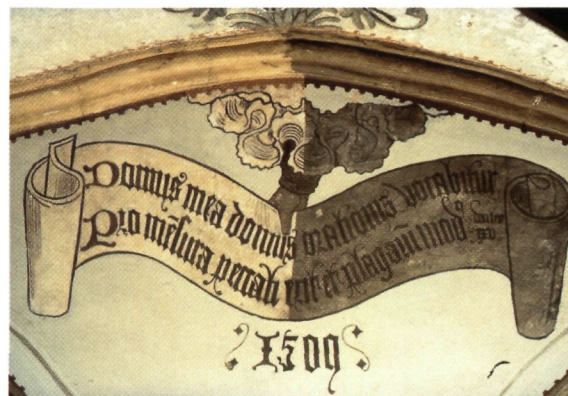 Domus mea domus orationis vocabitur
Pro mēsura peccati erit et plagaꝝ mod⁹
1509